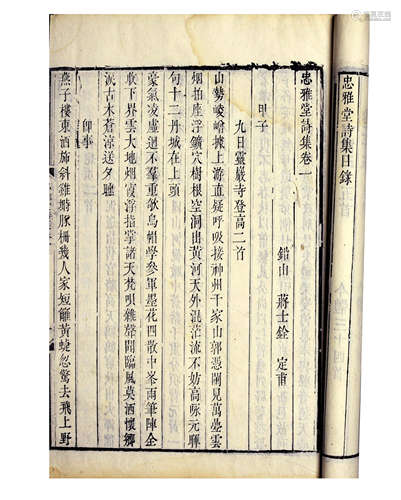 忠雅堂詩集目錄
忠雅堂詩集卷一
鉛山 蔣士銓 定甫
甲子
九日靈巖寺登高二首
山勢崚嶒據上游直疑呼吸接神州千家山郭憑闌見萬壑雲
烟拍座浮鑛穴樹根空洞出黃河天外混茫流不妨高詠元暉
句十二丹城在上頭
豪氣凌虛迥不羣重欹烏帽學參軍墨花四散中峯雨筆陣全
收下界雲大地烟霞浮指掌諸天梵唄雜聲聞臨風莫洒懷鄉
淚古木蒼涼送夕曛
卽事
燕子樓東酒旆斜雞塒豚柵幾人家短籬黃蜨忽驚去飛上野